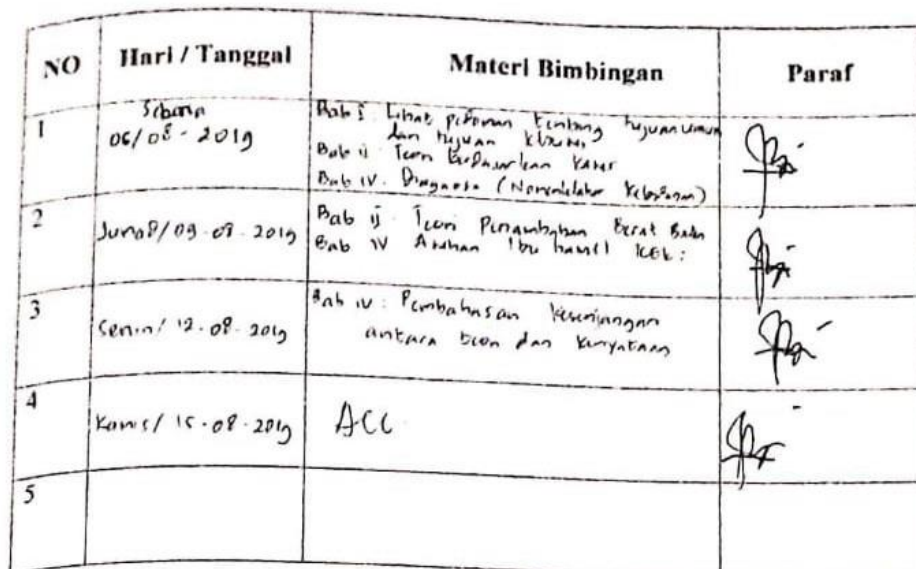 NO Hari / Tanggal Materi Bimbingan Paraf
1
06/08 - 2019
Bab I. Lihat pedoman tentang tujuan umum
dan tujuan khusus
Bab II. Teori berdasarkan kasus
Bab IV. Diagnosa (Nomenklatur Kebidanan)
2
Jumat/09-08-2019
Bab II. Teori Penambahan Berat Badan
Bab IV Asuhan Ibu hamil KEK:
3
Senin/12-08-2019
Bab IV: Pembahasan Kesenjangan
antara teori dan kenyataan
4
Kamis/15-08-2019
ACC
5